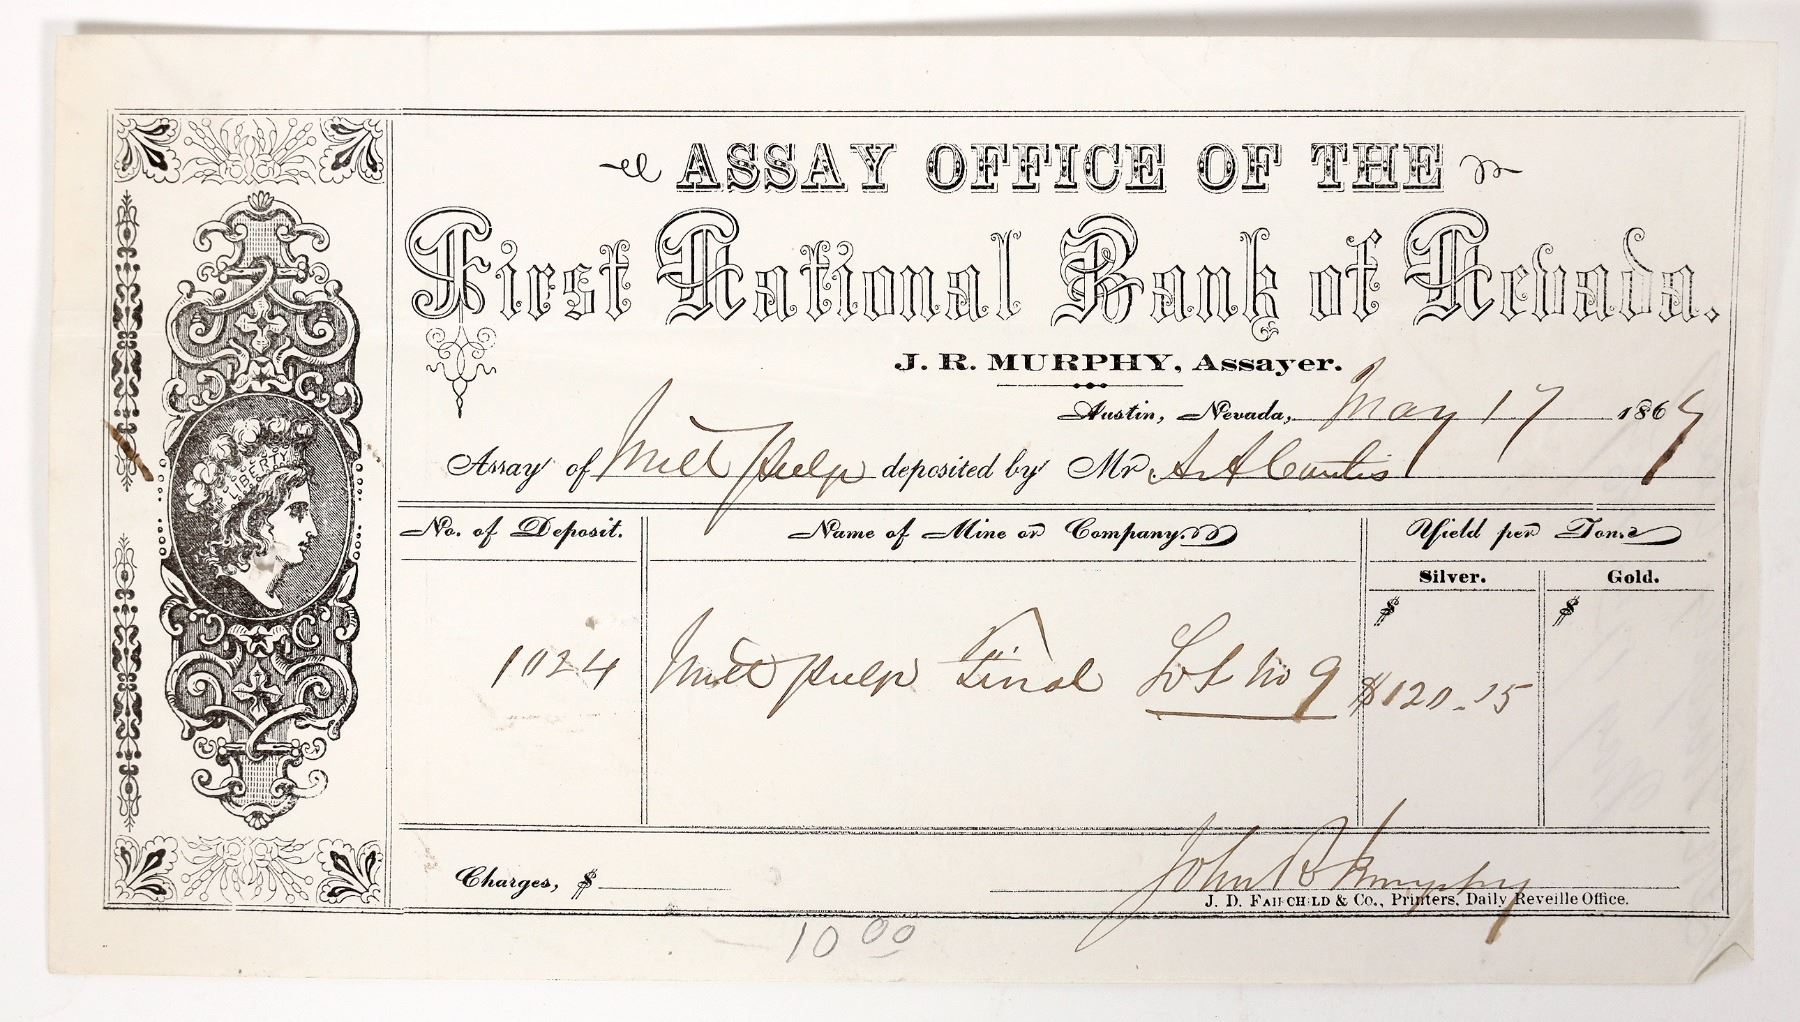 ASSAY OFFICE OF THE
First National Bank of Nevada.
J. R. MURPHY, Assayer.
Austin, Nevada, May 17 1867
Assay of Mill pulp deposited by Mr. A A Curtis
No. of Deposit. Name of Mine or Company. Yield per Ton.
Silver. Gold.
$ $
1024 Mill pulp Final Lot No 9 $120.75
LIBERTY
John R Murphy
Charges, $
J. D. FAIRCHILD & Co., Printers, Daily Reveille Office.
10 00